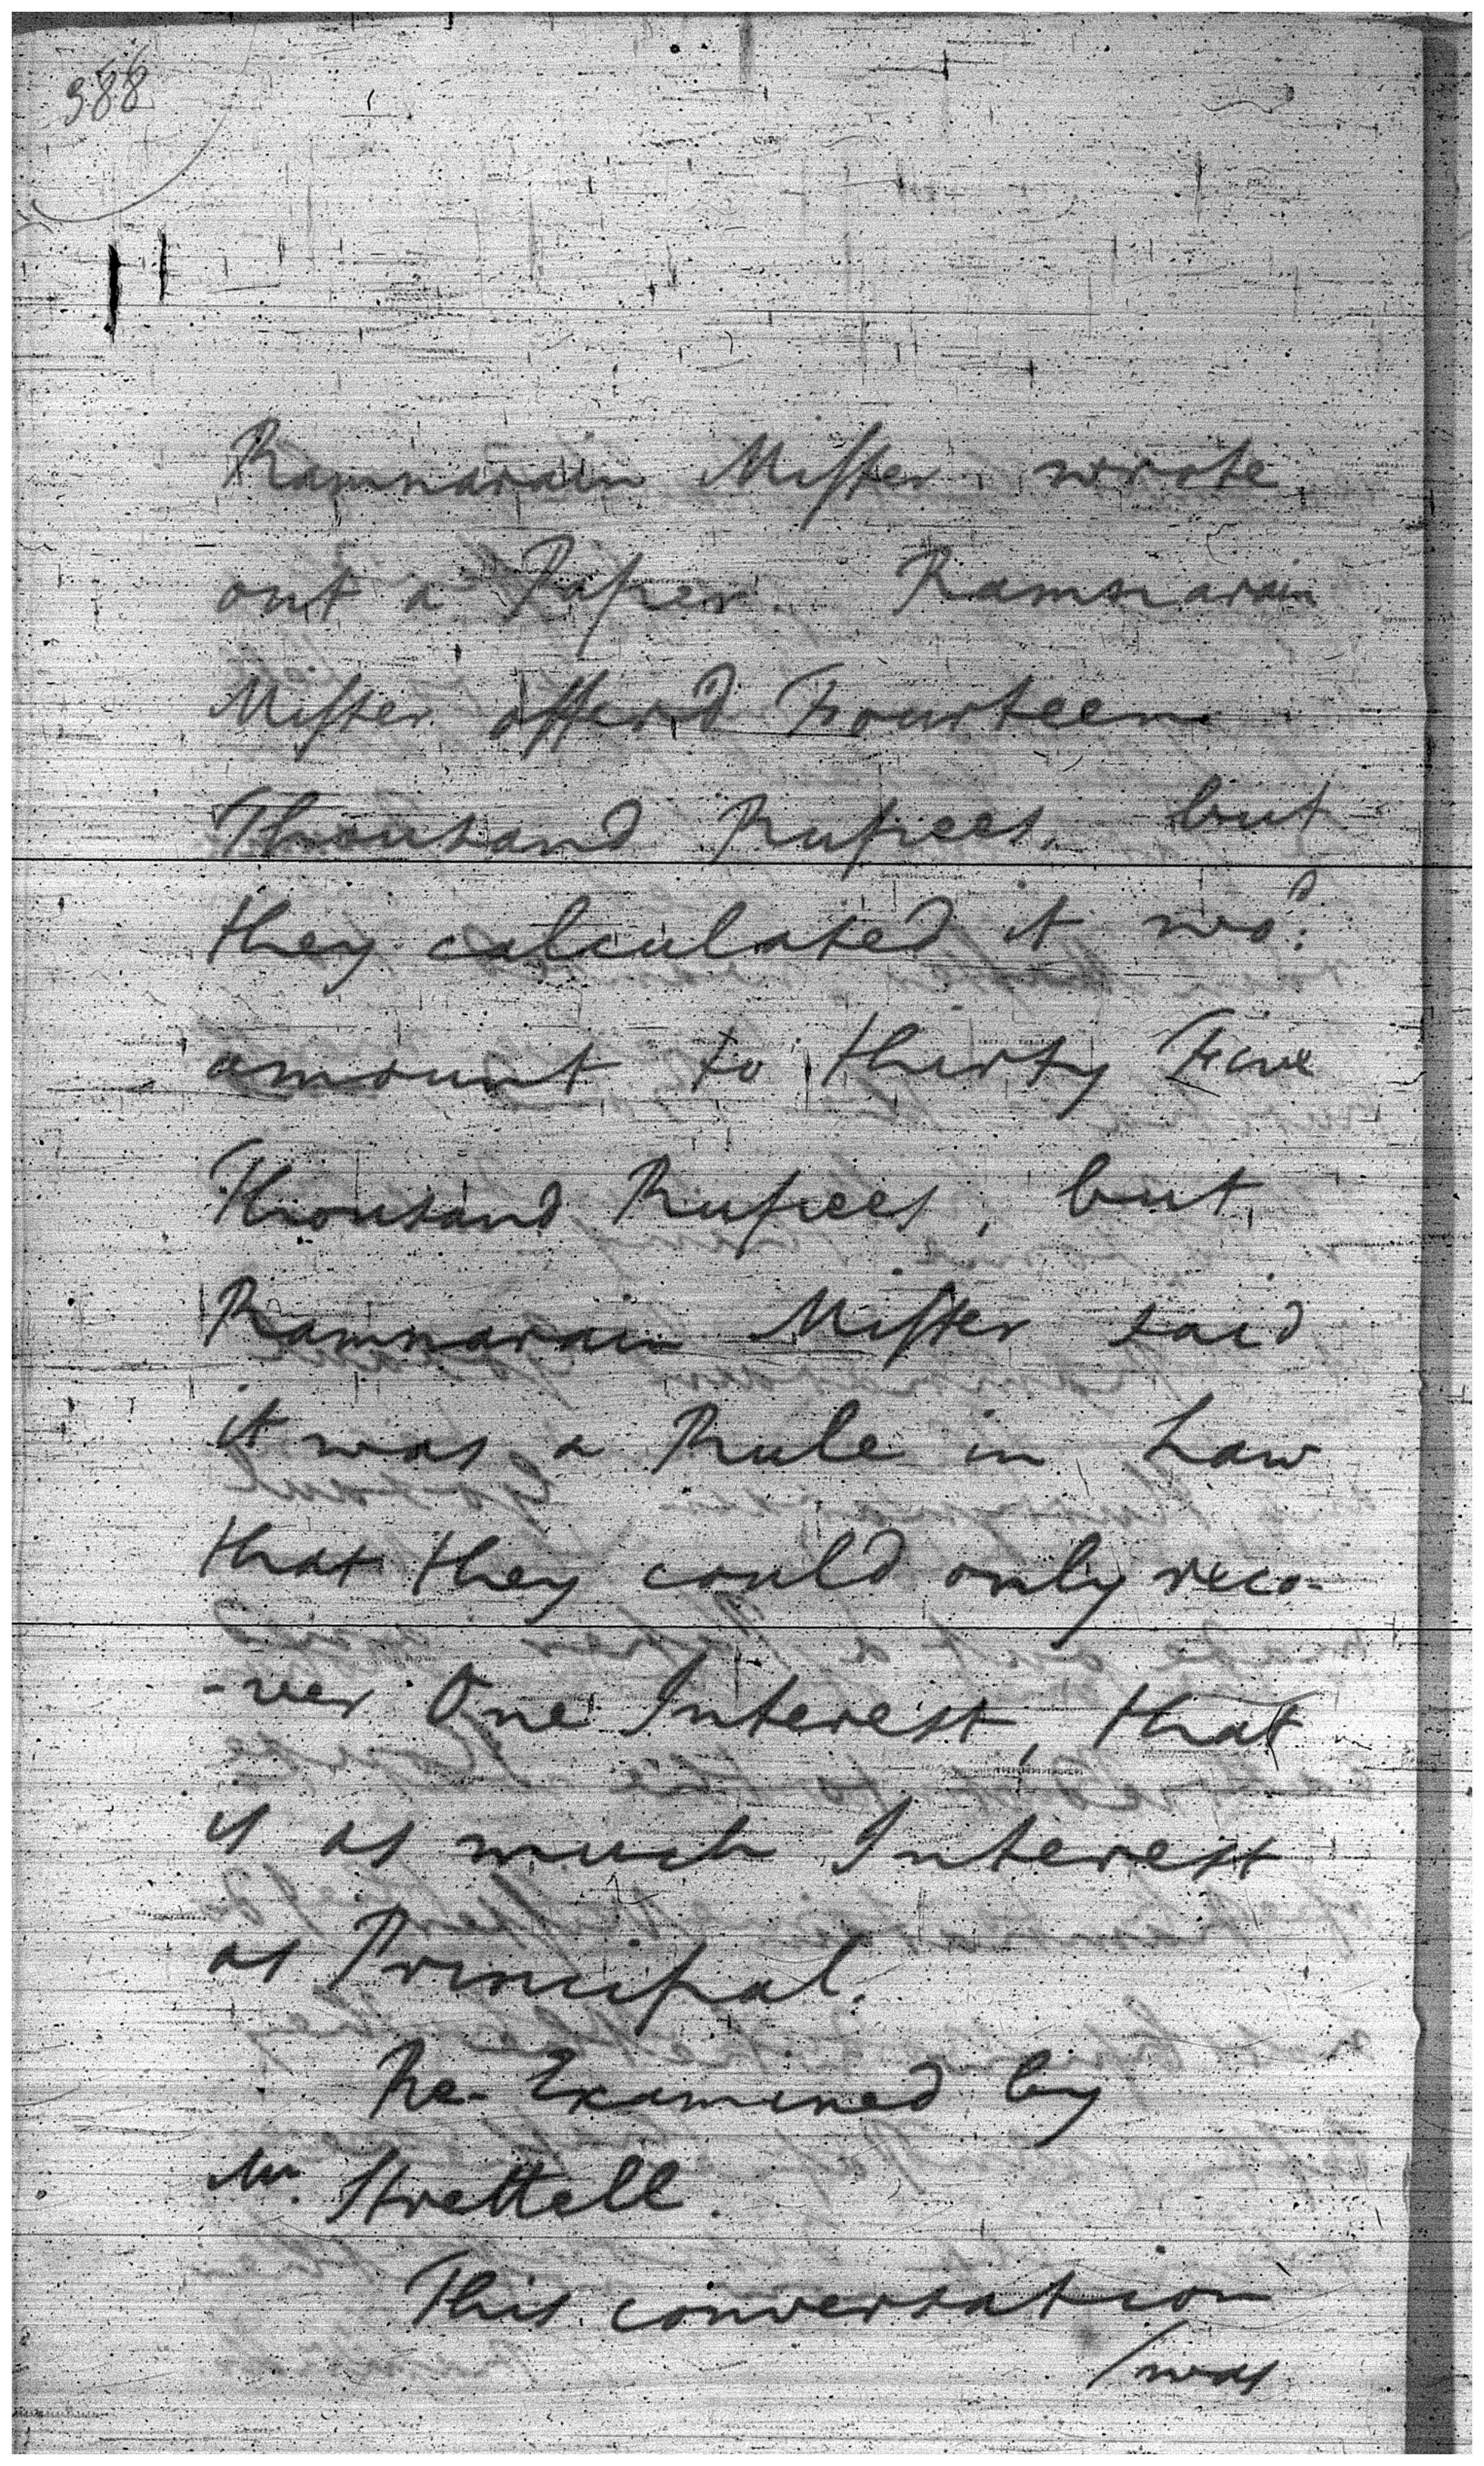 388
Ramnarain Misser wrote
out a Paper. Ramnarain
Misser offer'd Fourteen
Thousand Rupees, but
they calculated it wo.d
amount to thirty Five
Thousand Rupees, but
Ramnarain Misser said
it was a Rule in Law
that they could only reco-
-ver One Interest, that
is as much Interest
as Principal.
Re-Examined by
Mr. Strettell.
This conversation
/was